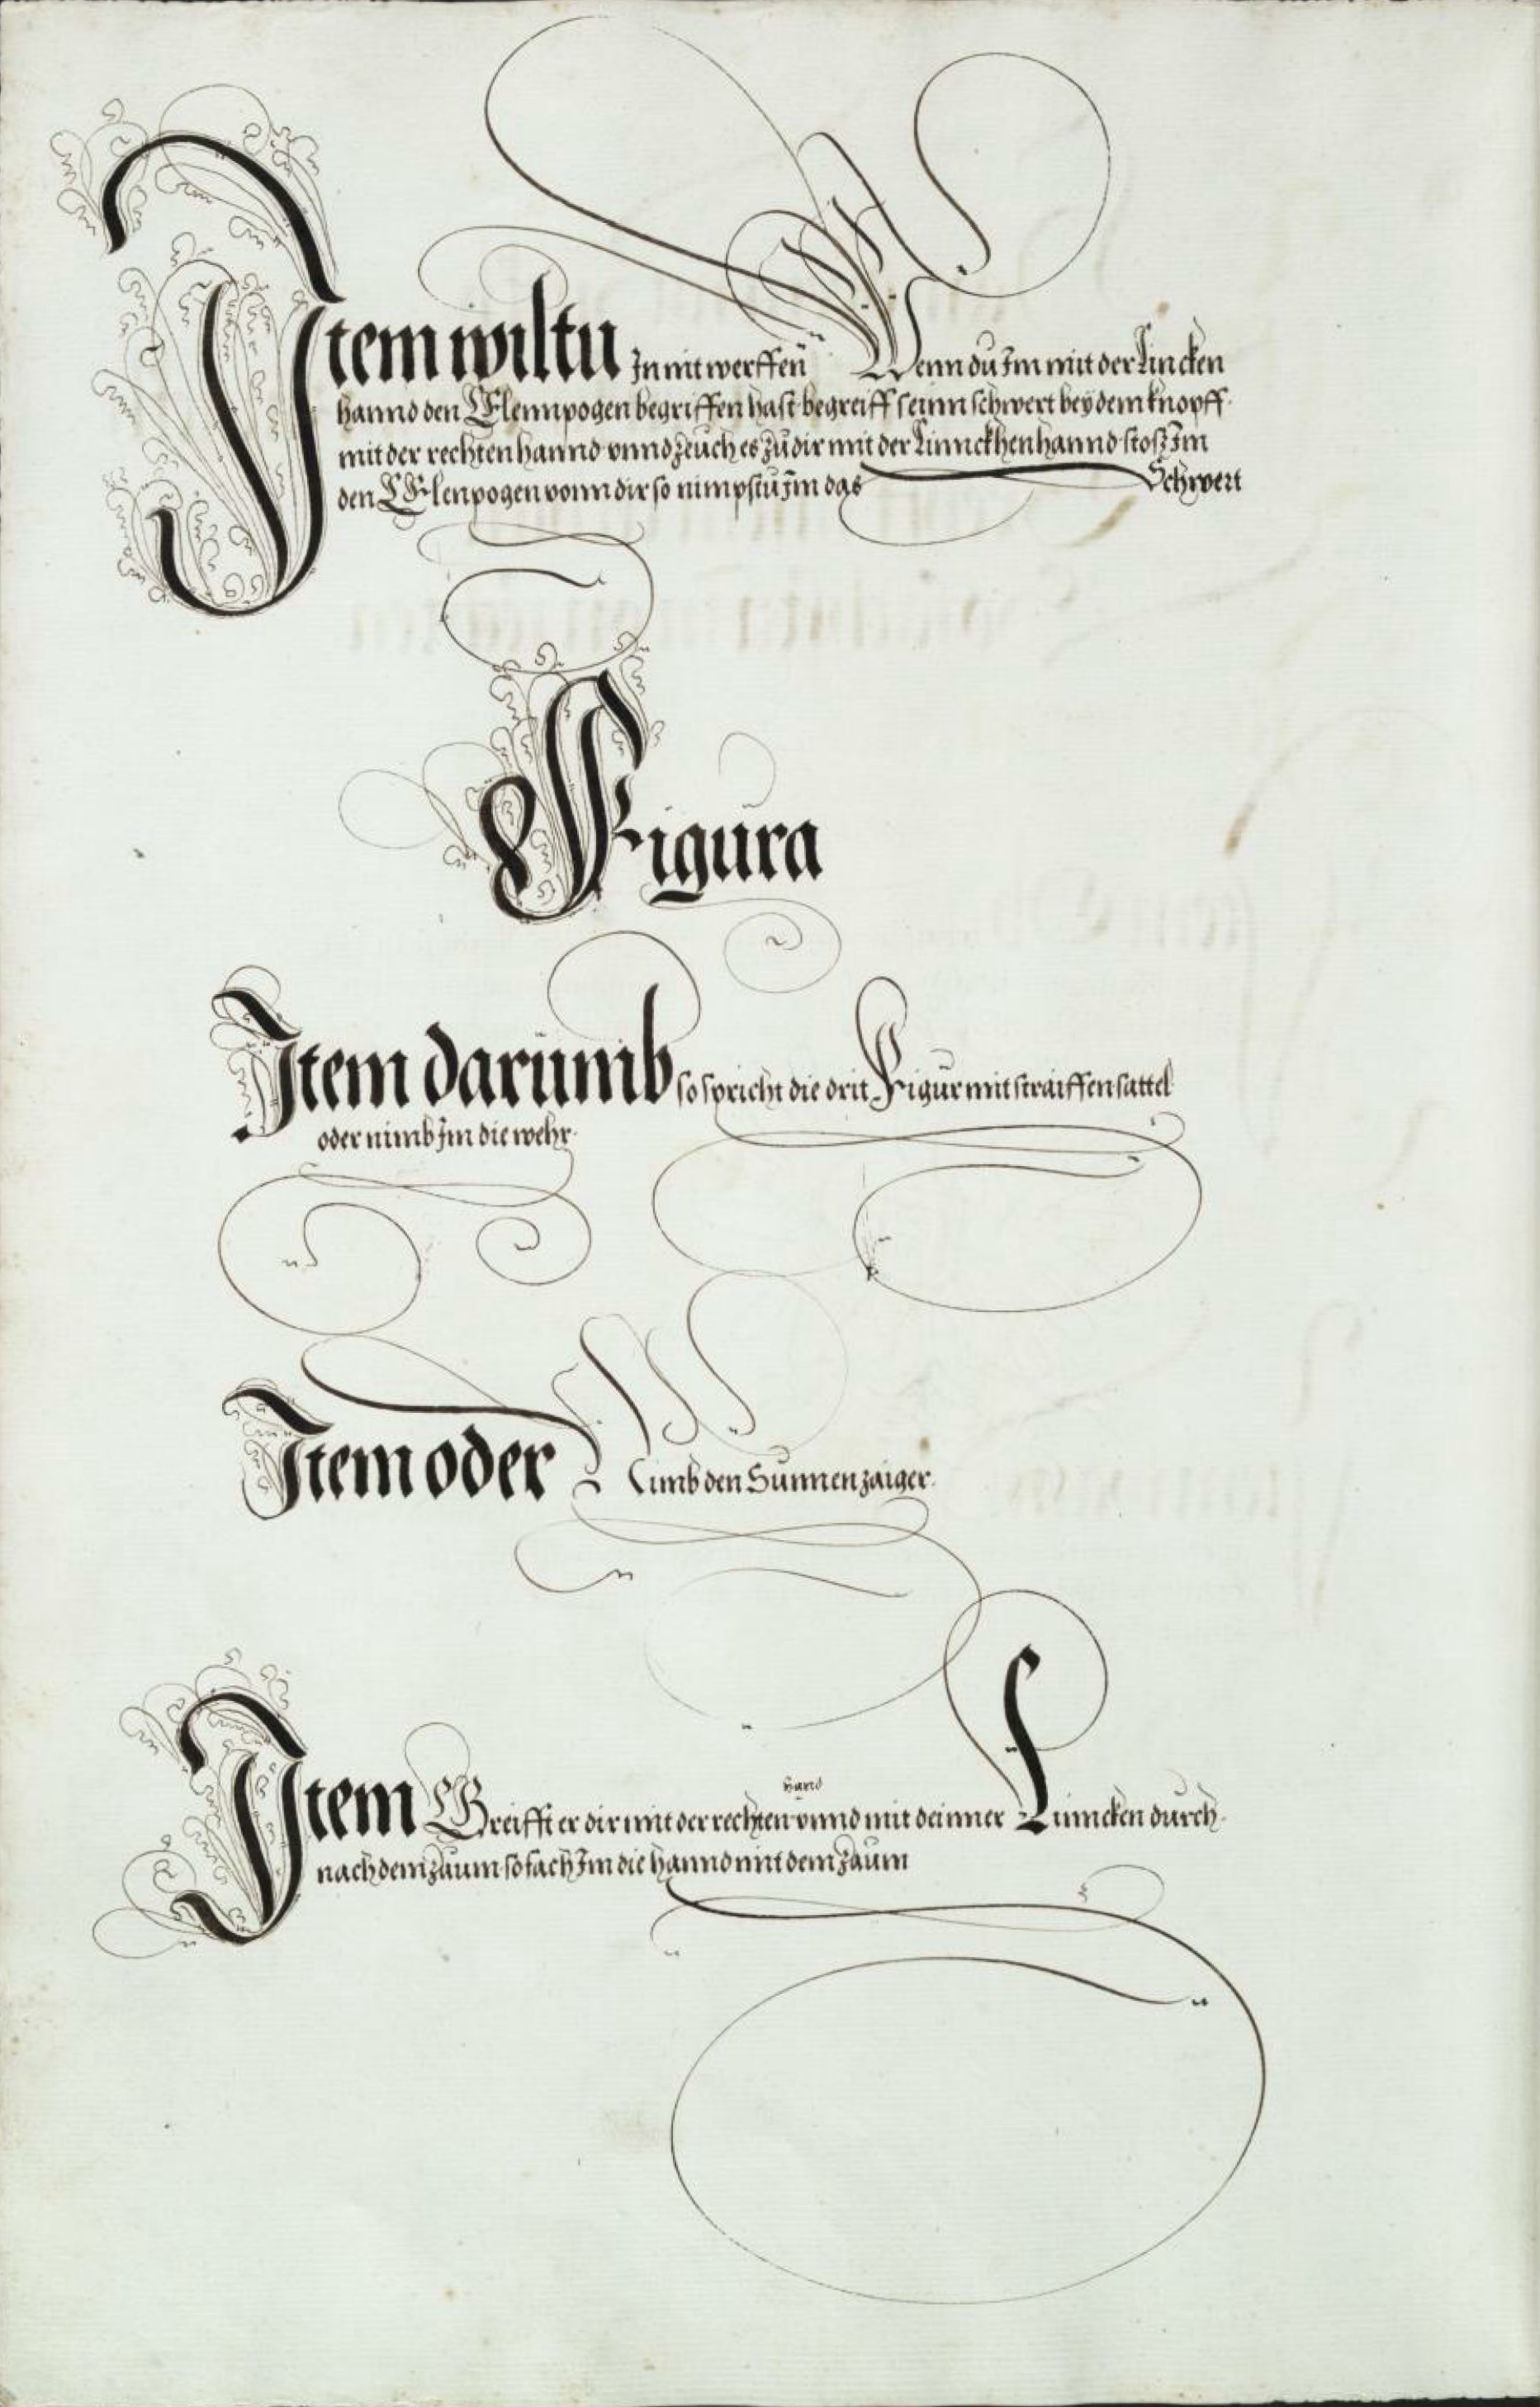 Item wiltu In nit werffen Wenn du Im mit der Lincken
hannd den Elennpogen begriffen hast begreiff seinn schwert bey dem knopff
mit der rechten hannd vnnd zeuch es zu dir mit der Linnckhen hannd stosz Im
den Elenpogen vonn dir so nimpstu Im das Schwert
Figura
Item darumb so spricht die drit Figur mit straiffen sattel
oder nimb Im die wehr
Item oder Nimb den Sunnenzaiger
hand
Item Greifft er dir mit der rechten vnnd mit deinner Linncken durch
nach dem zaum so fach Im die hannd mit dem zaum